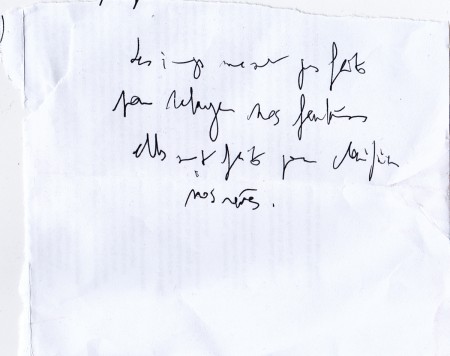 Les images ne sont pas faites
pour nos fantômes
elles sont faites pour clarifier
nos rêves.